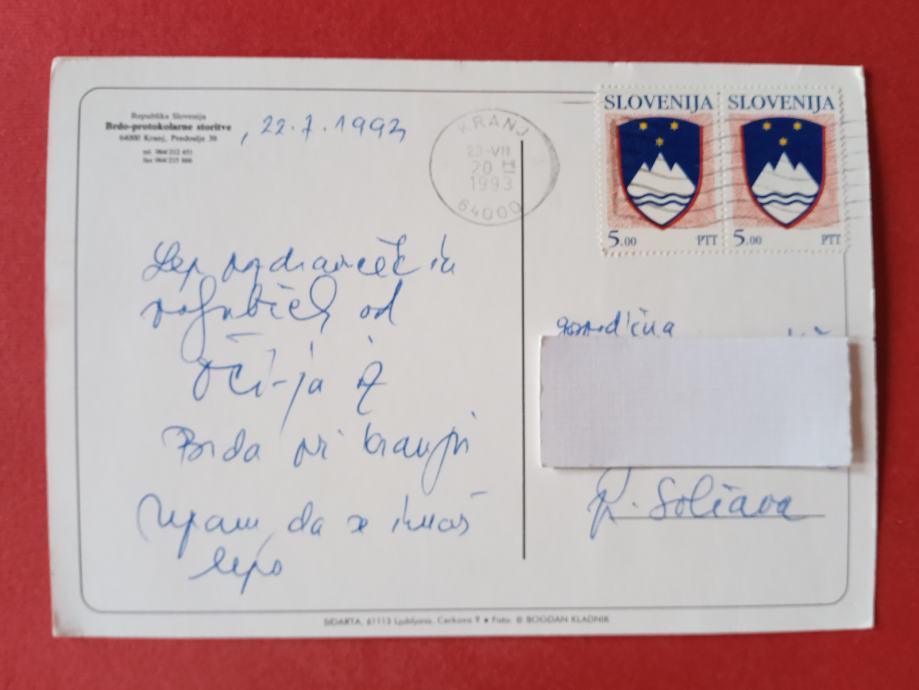 Republika Slovenija
Brdo-protokolarne storitve
64000 Kranj, Predoslje 39
tel. 064/212 451
, 22.7.1993
KRANJ
23-VII
20
1993
64000
SLOVENIJA
5.00 PTT
SLOVENIJA
5.00 PTT
Lep pozdravček in
poljubček od
Oči-ja iz
Brda pri Kranju
Upam, da se imaš
lepo
gospodična
p. Solčava
SIDARTA, 61113 Ljubljana, Cankova 9 • Foto: © BOGDAN KLADNIK